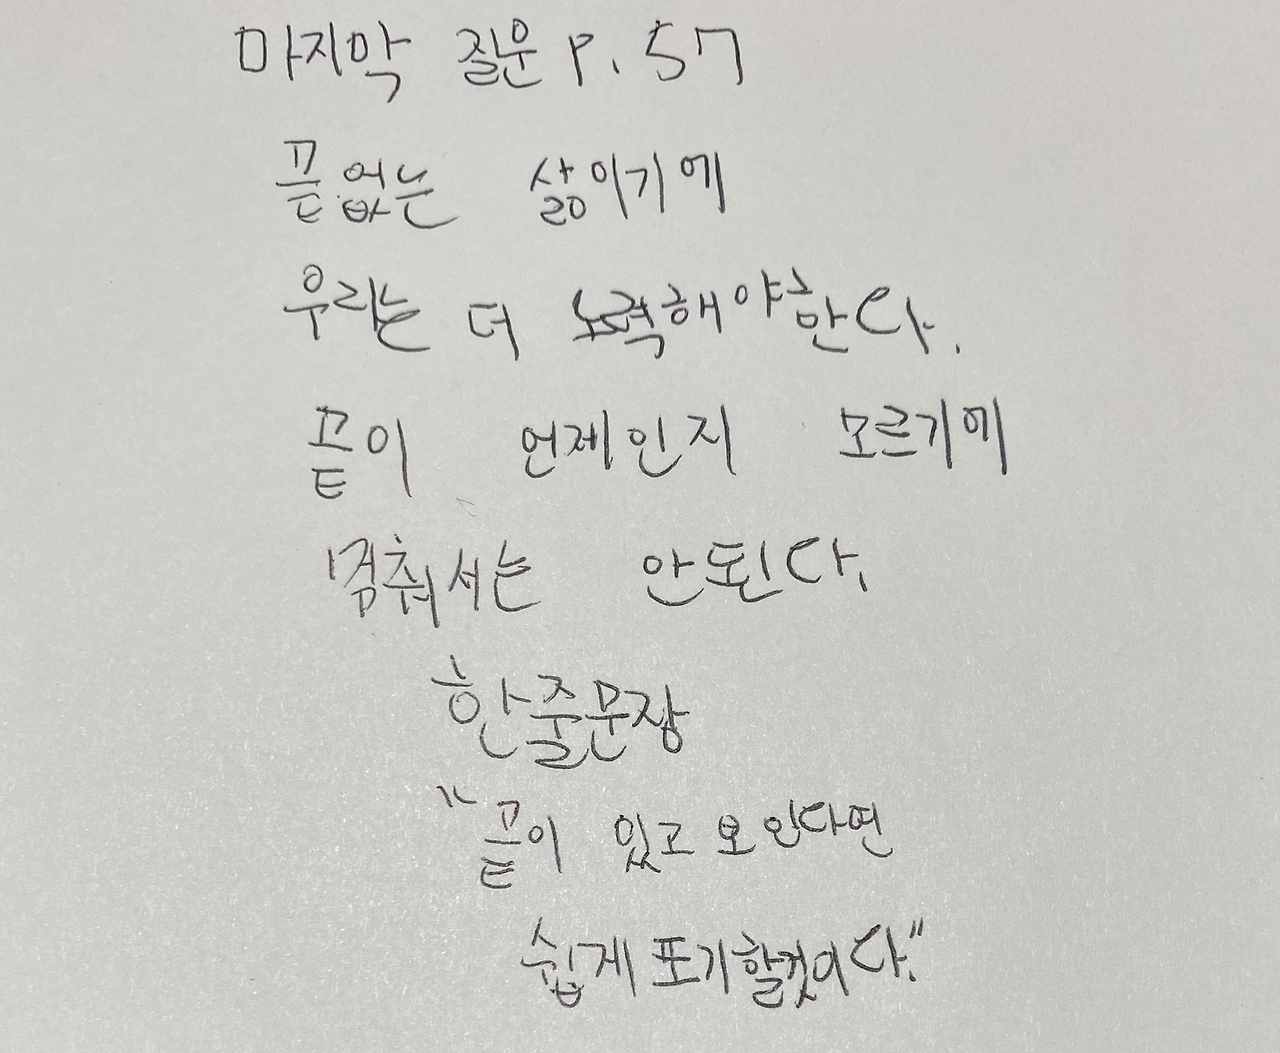 마지막 질문 P. 57
끝없는 삶이기에
우리는 더 노력해야한다.
끝이 언제인지 모르기에
멈춰서는 안된다.
한줄문장
"끝이 있고 보인다면
쉽게 포기할것이다."